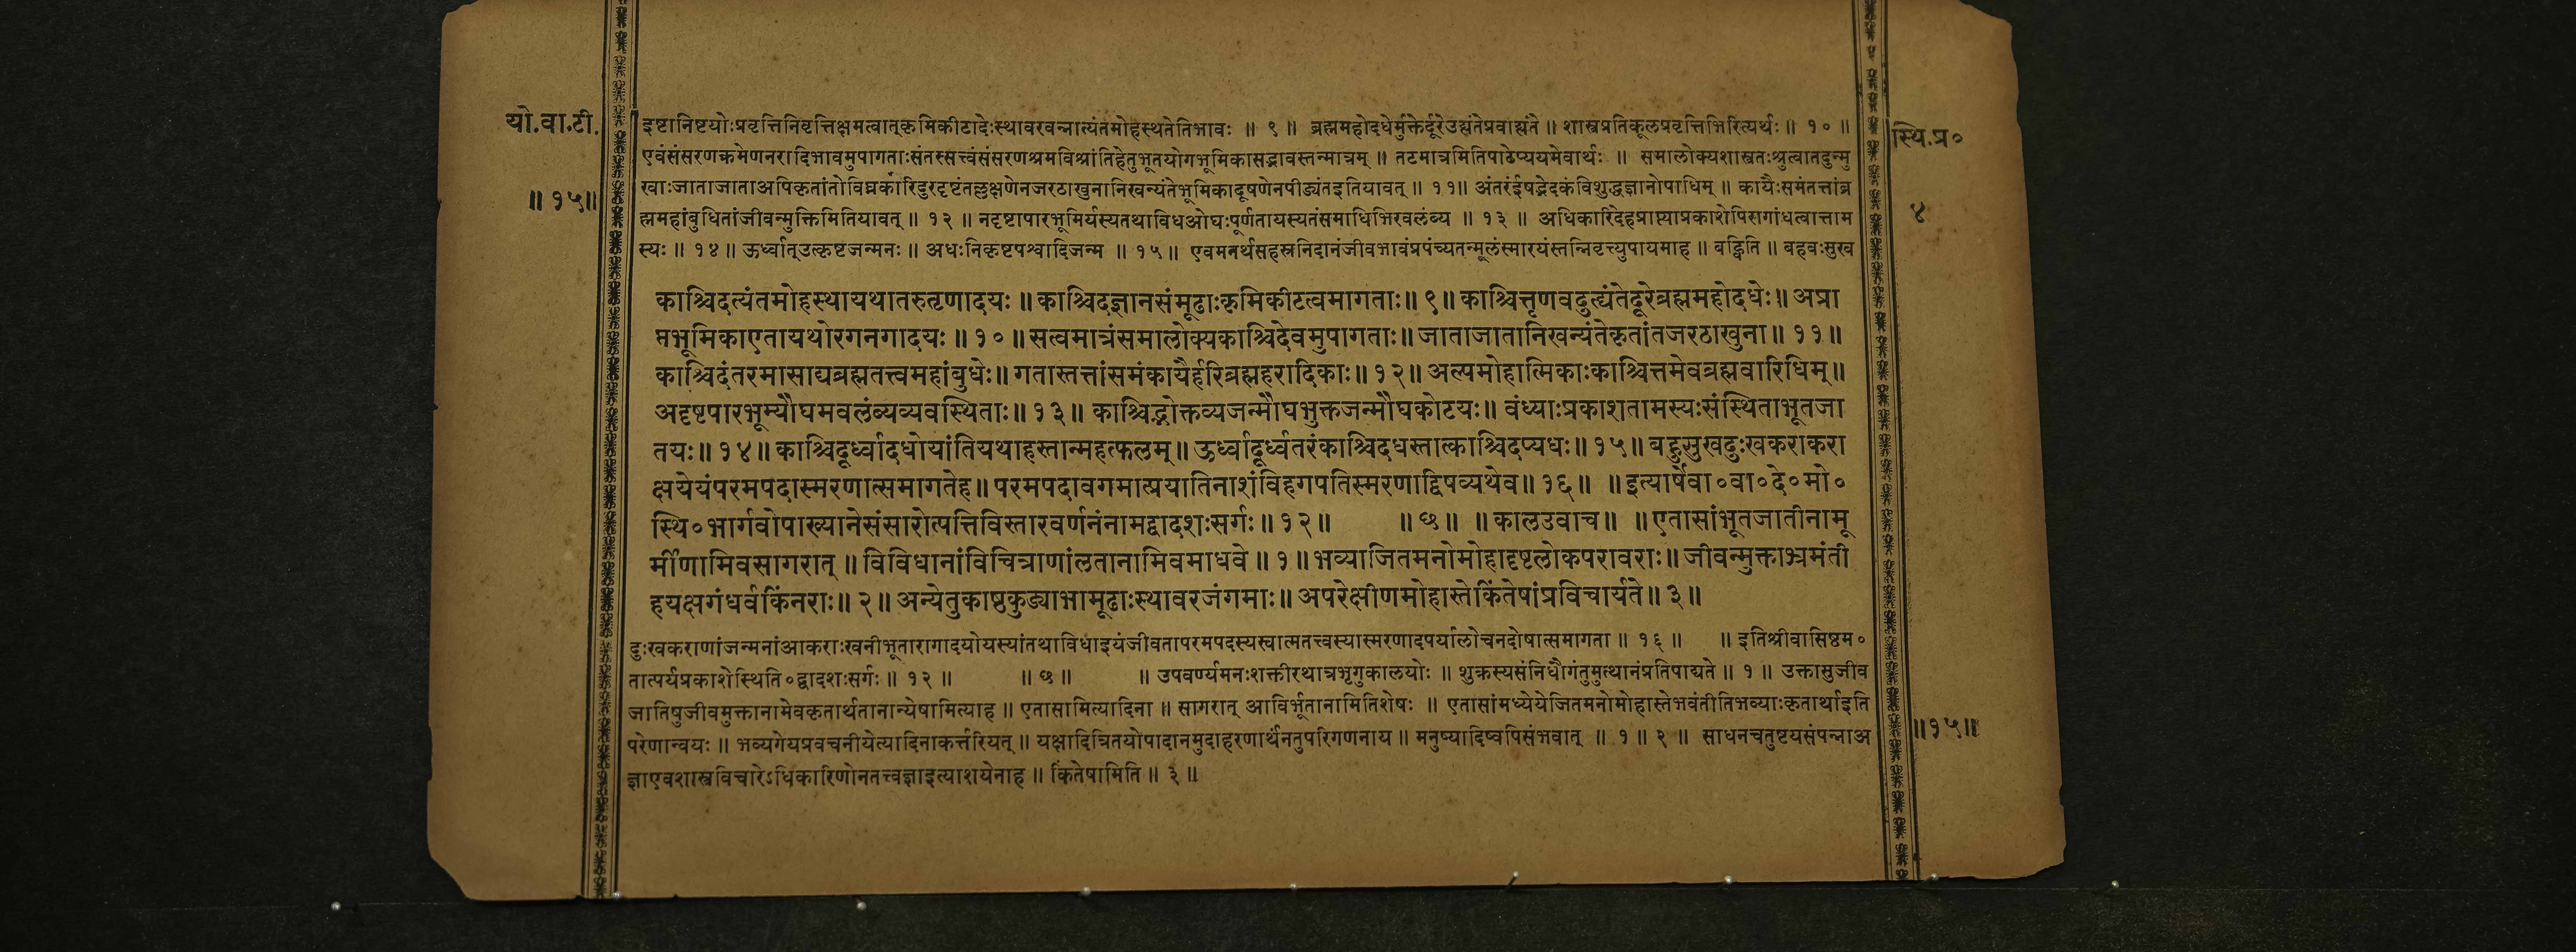 यो.वा.टी.
॥ १५॥
इष्टानिष्टयोःप्रवृत्तिनिवृत्तिक्षमत्वात्कृमिकीटादेःस्थावरवन्नात्यंतमोहस्थतेतिभावः ॥ ९ ॥ ब्रह्ममहोदधेर्मुक्तेर्दूरेउह्यंतेप्रवाह्यंते ॥ शास्त्रप्रतिकूलप्रवृत्तिभिरित्यर्थः ॥ १० ॥
एवंसंसरणक्रमेणनरादिभावमुपागताःसंतस्सत्त्वंसंसरणश्रमविश्रांतिहेतुभूतयोगभूमिकासद्भावस्तन्मात्रम् ॥ तटमात्रमितिपाठेप्ययमेवार्थः ॥ समालोक्यशास्त्रतःश्रुत्वातदुन्मु
खाःजाताजाताअपिकृतांतोविघ्नकारिदुरदृष्टंतल्लक्षणेनजरठाखुनानिखन्यंतेभूमिकादूषणेनपीड्यंतइतियावत् ॥ ११॥ अंतरंईषद्भेदकंविशुद्धज्ञानोपाधिम् ॥ कायैःसमंतत्तांब्र
ह्ममहांबुधितांजीवन्मुक्तिमितियावत् ॥ १२ ॥ नदृष्टापारभूमिर्यस्यतथाविधओघःपूर्णतायस्यतंसमाधिभिरवलंब्य ॥ १३ ॥ अधिकारिदेहप्राप्त्याप्रकाशेपिरागांधत्वात्ताम
स्यः ॥ १४ ॥ ऊर्ध्वात्उत्कृष्टजन्मनः ॥ अधःनिकृष्टपश्वादिजन्म ॥ १५ ॥ एवमनर्थसहस्रनिदानंजीवभावंप्रपंच्यतन्मूलंस्मारयंस्तन्निवृत्त्युपायमाह ॥ बह्विति ॥ बहवःसुख
काश्चिदत्यंतमोहस्थायथातरुतृणादयः ॥ काश्चिदज्ञानसंमूढाःकृमिकीटत्वमागताः॥ ९॥ काश्चित्तृणवदुह्यंतेदूरेब्रह्ममहोदधेः॥ अप्रा
प्तभूमिकाएतायथोरगनगादयः ॥ १० ॥ सत्वमात्रंसमालोक्यकाश्चिदेवमुपागताः॥ जाताजातानिखन्यंतेकृतांतजरठाखुना ॥ ११ ॥
काश्चिदंतरमासाद्यब्रह्मतत्त्वमहांबुधेः॥ गतास्तत्तांसमंकायैर्हरिब्रह्महरादिकाः॥ १२॥ अल्पमोहात्मिकाःकाश्चित्तमेवब्रह्मवारिधिम्॥
अदृष्टपारभूम्यौघमवलंब्यव्यवस्थिताः॥ १३॥ काश्चिद्भोक्तव्यजन्मौघभुक्तजन्मौघकोटयः॥ वंध्याःप्रकाशतामस्यःसंस्थिताभूतजा
तयः॥ १४॥ काश्चिदूर्ध्वादधोयांतियथाहस्तान्महत्फलम्॥ ऊर्ध्वादूर्ध्वतरंकाश्चिदधस्तात्काश्चिदप्यधः॥ १५॥ बहुसुखदुःखकराकरा
क्षयेयंपरमपदास्मरणात्समागतेह॥ परमपदावगमात्प्रयातिनाशंविहगपतिस्मरणाद्विषव्यथेव॥ १६॥ ॥ इत्यार्षेवा०वा०दे०मो०
स्थि०भार्गवोपाख्यानेसंसारोत्पत्तिविस्तारवर्णनंनामद्वादशःसर्गः॥ १२॥ ॥ ७॥ ॥ कालउवाच॥ ॥ एतासांभूतजातीनामू
र्मीणामिवसागरात् ॥ विविधानांविचित्राणांलतानामिवमाधवे ॥ १॥ भव्याजितमनोमोहादृष्टलोकपरावराः॥ जीवन्मुक्ताभ्रमंती
हयक्षगंधर्वकिंनराः॥ २॥ अन्येतुकाष्ठकुड्याभामूढाःस्थावरजंगमाः॥ अपरेक्षीणमोहास्तेकिंतेषांप्रविचार्यते॥ ३॥
दुःखकराणांजन्मनांआकराःखनीभूतारागादयोयस्यांतथाविधाइयंजीवतापरमपदस्यस्वात्मतत्त्वस्यास्मरणादपर्यालोचनदोषात्समागता ॥ १६ ॥ ॥ इतिश्रीवासिष्ठम०
तात्पर्यप्रकाशेस्थिति०द्वादशःसर्गः ॥ १२ ॥ ॥ ७ ॥ ॥ उपवर्ण्यमनःशक्तीरथात्रभृगुकालयोः ॥ शुक्रस्यसंनिधौगंतुमुत्थानंप्रतिपाद्यते ॥ १ ॥ उक्तासुजीव
जातिषुजीवमुक्तानामेवकृतार्थतानान्येषामित्याह ॥ एतासामित्यादिना ॥ सागरात् आविर्भूतानामितिशेषः ॥ एतासांमध्येयेजितमनोमोहास्तेभवंतीतिभव्याःकृतार्थाइति
परेणान्वयः ॥ भव्यगेयप्रवचनीयेत्यादिनाकर्त्तरियत् ॥ यक्षादित्रितयोपादानमुदाहरणार्थंनतुपरिगणनाय ॥ मनुष्यादिष्वपिसंभवात् ॥ १ ॥ २ ॥ साधनचतुष्टयसंपन्नाअ
ज्ञाएवशास्त्रविचारेऽधिकारिणोनतत्त्वज्ञाइत्याशयेनाह ॥ किंतेषामिति ॥ ३ ॥
स्थि.प्र०
४
॥१५॥